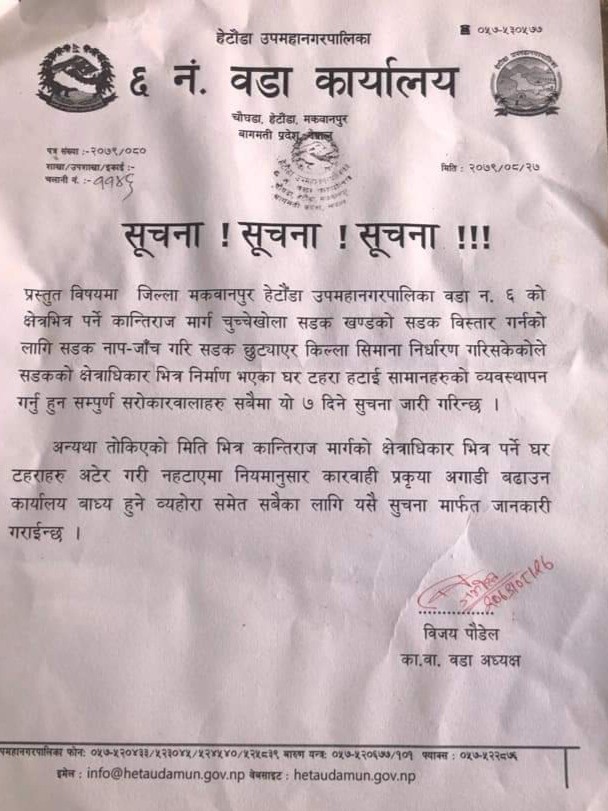 हेटौंडा उपमहानगरपालिका
☎ ०५७-५३०५७७
६ नं. वडा कार्यालय
चौघडा, हेटौंडा, मकवानपुर
बागमती प्रदेश, नेपाल
पत्र संख्या :-२०७९/०८०
शाखा/उपशाखा/इकाई :-
मिति : २०७९/०८/२७
चलानी नं. :-११४६
सूचना ! सूचना ! सूचना !!!
प्रस्तुत विषयमा जिल्ला मकवानपुर हेटौंडा उपमहानगरपालिका वडा न. ६ को
क्षेत्रभित्र पर्ने कान्तिराज मार्ग चुच्चेखोला सडक खण्डको सडक विस्तार गर्नको
लागि सडक नाप-जाँच गरि सडक छुट्याएर किल्ला सिमाना निर्धारण गरिसकेकोले
सडकको क्षेत्राधिकार भित्र निर्माण भएका घर टहरा हटाई सामानहरुको व्यवस्थापन
गर्नु हुन सम्पुर्ण सरोकारवालाहरु सबैमा यो ७ दिने सुचना जारी गरिन्छ ।
अन्यथा तोकिएको मिति भित्र कान्तिराज मार्गको क्षेत्राधिकार भित्र पर्ने घर
टहराहरु अटेर गरी नहटाएमा नियमानुसार कारवाही प्रकृया अगाडी बढाउन
कार्यालय बाध्य हुने व्यहोरा समेत सबैका लागि यसै सुचना मार्फत जानकारी
गराईन्छ ।
विजय पौडेल
का.वा. वडा अध्यक्ष
पमहानगरपालिका फोन: ०५७-५२०४३३/५२३०४५/५२४५४०/५२५८३९ बारुण यन्त्र: ०५७-५२०६७७/१०१ फ्याक्स : ०५७-५२२८७५
इमेल : info@hetaudamun.gov.np वेबसाइट : hetaudamun.gov.np